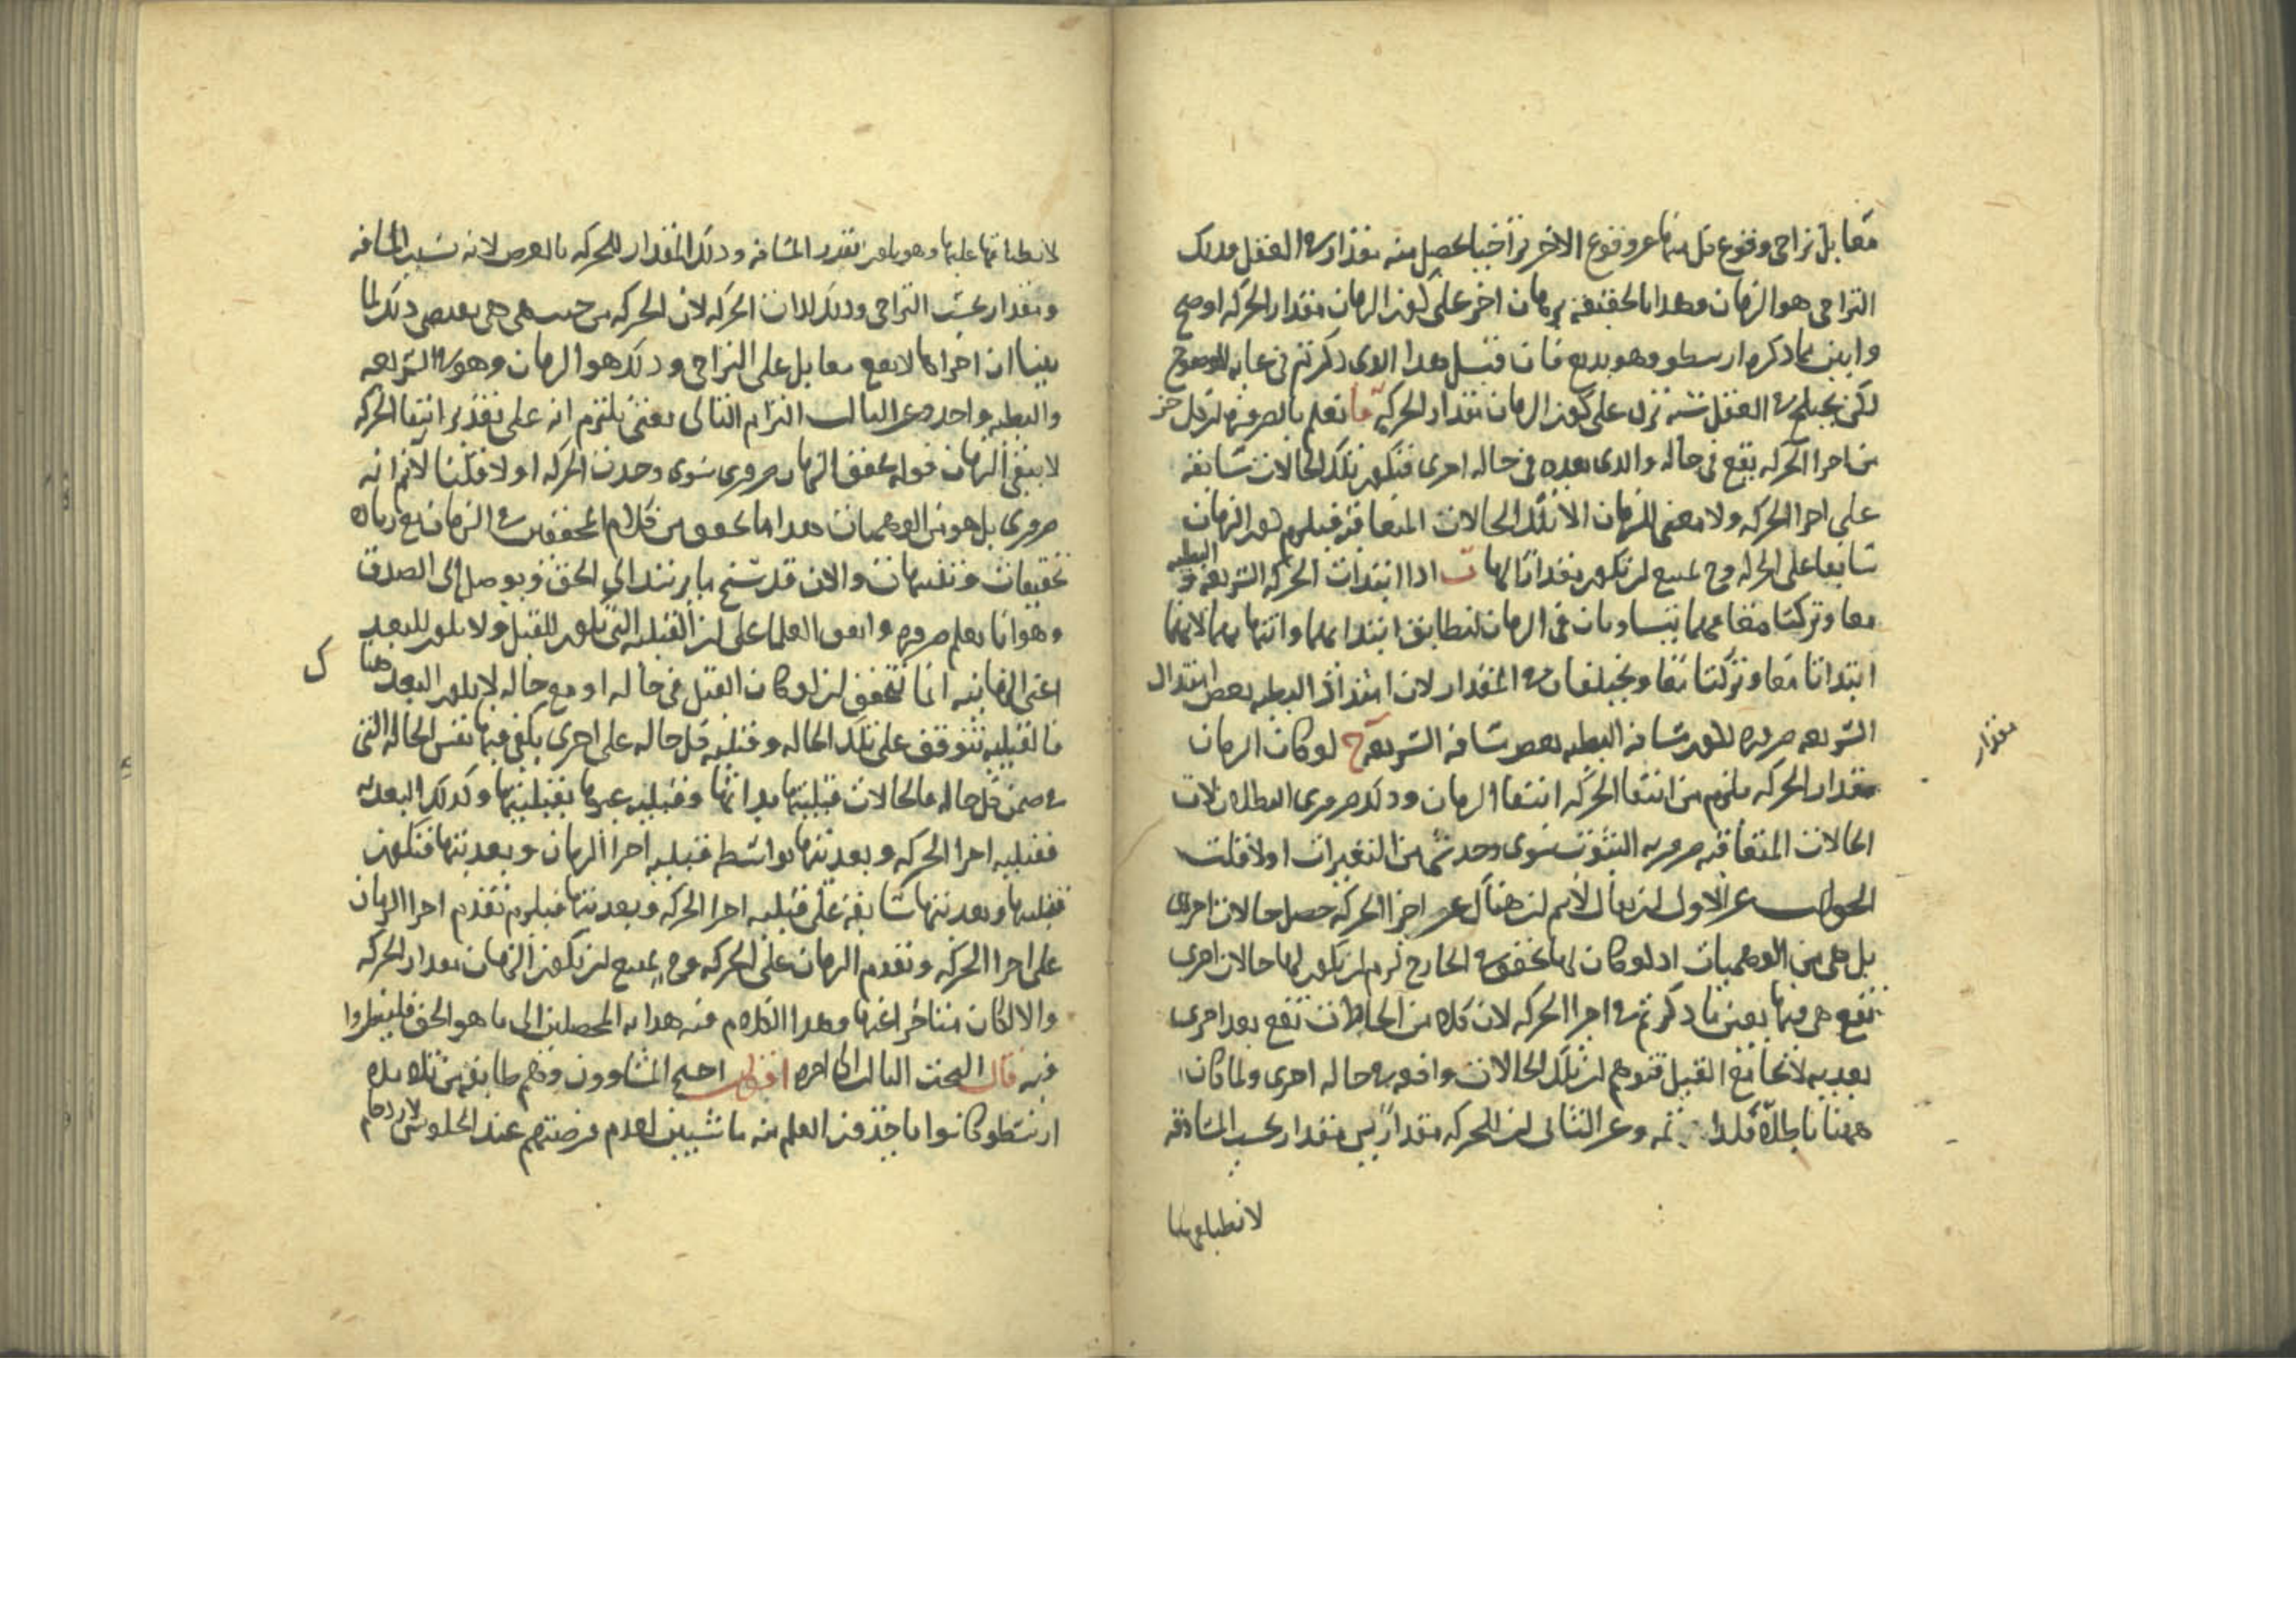 مقابل تراخى وقوع كل منهما عن وقوع الاخر تراخيا يحصل منه مقدار فى العقل وذلك
التراخى هو الزمان وهذا بالحقيقة برهان اخر على كون الزمان مقدار الحركة اوضح
وابين مما ذكره ارسطو وهو بديع فان قيل هذا الذى ذكرتم فى غاية الوضوح
لكن يختلج فى العقل شبه تزل على كون الزمان مقدار الحركة ا نعلم بالضرورة ان كل جز
من اجزا الحركة يقع فى حالة والذى بعده فى حالة اخرى فتكون تلك الحالات سابقة
على اجزا الحركة ولا معنى للزمان الا تلك الحالات المتعاقبة فيلزم كون الزمان
سابقا على الحركة وح يمتنع ان يكون مقدارا لها ب اذا ابتدات الحركة السريعة والبطيه
معا وتركتا معا فهما يتساويان فى الزمان لتطابق ابتدائهما وانتهائهما لانهما
ابتداتا معا وتركتا معا ويختلفان فى المقدار لان امتداد البطيه بعض امتداد
السريعة ضرورة كون مسافة البطيه بعض مسافة السريعة ج لو كان الزمان
مقدار الحركة يلزم من انتفا الحركة انتفا الزمان وذلك ضرورى البطلان لان
الحالات المتعاقبة ضرورية الثبوت سوى وجد شى من التغيرات اولا قلت
الجواب عن الاول ان يقال لانم ان هناك غير اجزا الحركة حصل حالات اخرى
بل هى من الوهميات اذ لو كان لها تحقق فى الخارج لزم ان يكون لها حالات اخرى
تقع هى فيها بعين ما ذكرتم فى اجزا الحركة لان كلا من الحالات تقع بعد اخرى
بعدية لا تجامع القبل فتوهم ان تلك الحالات واقعة فى حالة اخرى ولما كان
ههنا باطلا فكذا ثمه وعن الثانى ان للحركة مقدارين مقدار بحسب المسافة
لانطباقها
مقدار
لانطباقها عليها وهو بالعرض بقدر المسافة وذلك المقدار للحركة بالعرض لانه بسبب المسافة
ومقدار بحسب التراخى وذلك لذات الحركة لان الحركة من حيث هى هى يقتضى ذلك لما
بينا ان اجزاها لا تقع معا بل على التراخى وذلك هو الزمان وهو فى السريعة
والبطيه واحد وعن الثالث التزام التالى يعنى نلتزم انه على تقدير انتفا الحركة
لا يبقى الزمان قوله تحقق الزمان ضرورى سوى وجدت الحركة اولا قلنا لانم انه
ضرورى بل هو من الوهميات هذا ما تحقق من كلام المحققين فى الزمان مع زيادة
تحقيقات وتنبيهات والان قد سنح ما يرشد الى الحق ويوصل الى الصدق
وهو انا نعلم ضرورة واتفق العلما على ان القبلية التى تكون للقبل ولا تكون للبعد
اعنى الزمانية انما تتحقق ان لو كان القبل فى حالة او مع حالة لا يكون البعد هنا
ك
فالقبلية تتوقف على تلك الحالة وقبلية كل حالة على اخرى يكفى فيها نفس الحالة التى
فى ضمن كل حالة فالحالات قبليتها بذاتها وقبلية غيرها بقبليتها وكذلك البعدية
فقبلية اجزا الحركة وبعديتها بواسطة قبلية اجزا الزمان وبعديتها فتكون
قبليتها وبعديتها سابقة على قبلية اجزا الحركة وبعديتها فيلزم تقدم اجزا الزمان
على اجزا الحركة وتقدم الزمان على الحركة وح يمتنع ان يكون الزمان مقدار الحركة
والا لكان متاخرا عنها وهذا الكلام فيه هداية المحصلين الى ما هو الحق فلينظروا
فيه قال البحث الثالث الى اخره اقول احتج المشاوون وهم طايفة من تلامذة
ارسطو كانوا ياخذون العلم منه ماشيين لعدم فرصتهم عند الجلوس لازدحام